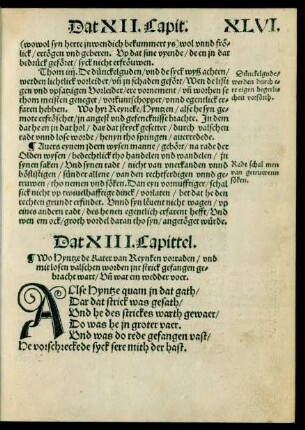 Dat XII. Capit. XLVI.
(wowol syn herte jnwendich bekummert ys) wol vnnd frö-
lick / ertögen vnd geberen. Up dat sine vyende / de en jn dat
bedrück gesöret / syck nicht erfröuwen.
Thom iij. De dünckelguden / vnd de syck wyß achten /
werden lichtlick vorleidet / vn̄ jn schaden gesöret / Wen de listi
gen vnd vpsatigen Vorleider / ere vornement / vn̄ worden se
thom meisten geneger / vorkunschopper / vnnd egentlick er-
faren hebben. Wo hyr Reynck / Hyntzen / alse he syn ge-
moete erfröscher / jn angest vnd gefencknisse brachte. In dem
dat he en jn dat hol / dar dat strick gesettet / durch valschen
radt vnnd lose worde / henyn tho springen / auerredede.
Dünckelgude
werden durch e-
re eigen begerlic-
heit vorförth.
¶ Auers eynem jdem wysen manne / gehört / na rade der
Olden wysen / bedechtlick tho handelen vnd wandelen / jn
synen saken / Vnd synen radt / nicht van vnerkanden vnnd
höflistigen / sünder allene / van den rechtferdigen vnnd ge-
truwen / tho nemen vnd söken. Dat eyn vornufftiger / schal
sick nicht vp twiuelhafftige dinck / vorlaten / her dat he den
rechten grundt erfindet. Vnnd syn leuent nicht wagen / vp
eines andern radt / des he nenen egentlich erfarent hefft / Vnd
wen em ock / groth vordel daran tho syn / angetöget würde.
Radt schal men
van getruwenn
söken.
Dat XIII. Capittel.
¶ Wo Hyntze de Kater van Reynken vorraden / vnd
mit losen valschen worden jnt strick gefangen ge-
bracht wart / Vn̄ wat em wedder voer.
Alse Hyntze quam jn dat gath /
Dar dat strick was gesath /
Vnd he des strickes warth gewaer /
Do was he jn groter vaer.
Vnd was do rede gefangen vast /
He vorschreckede syck sere mith der hast.